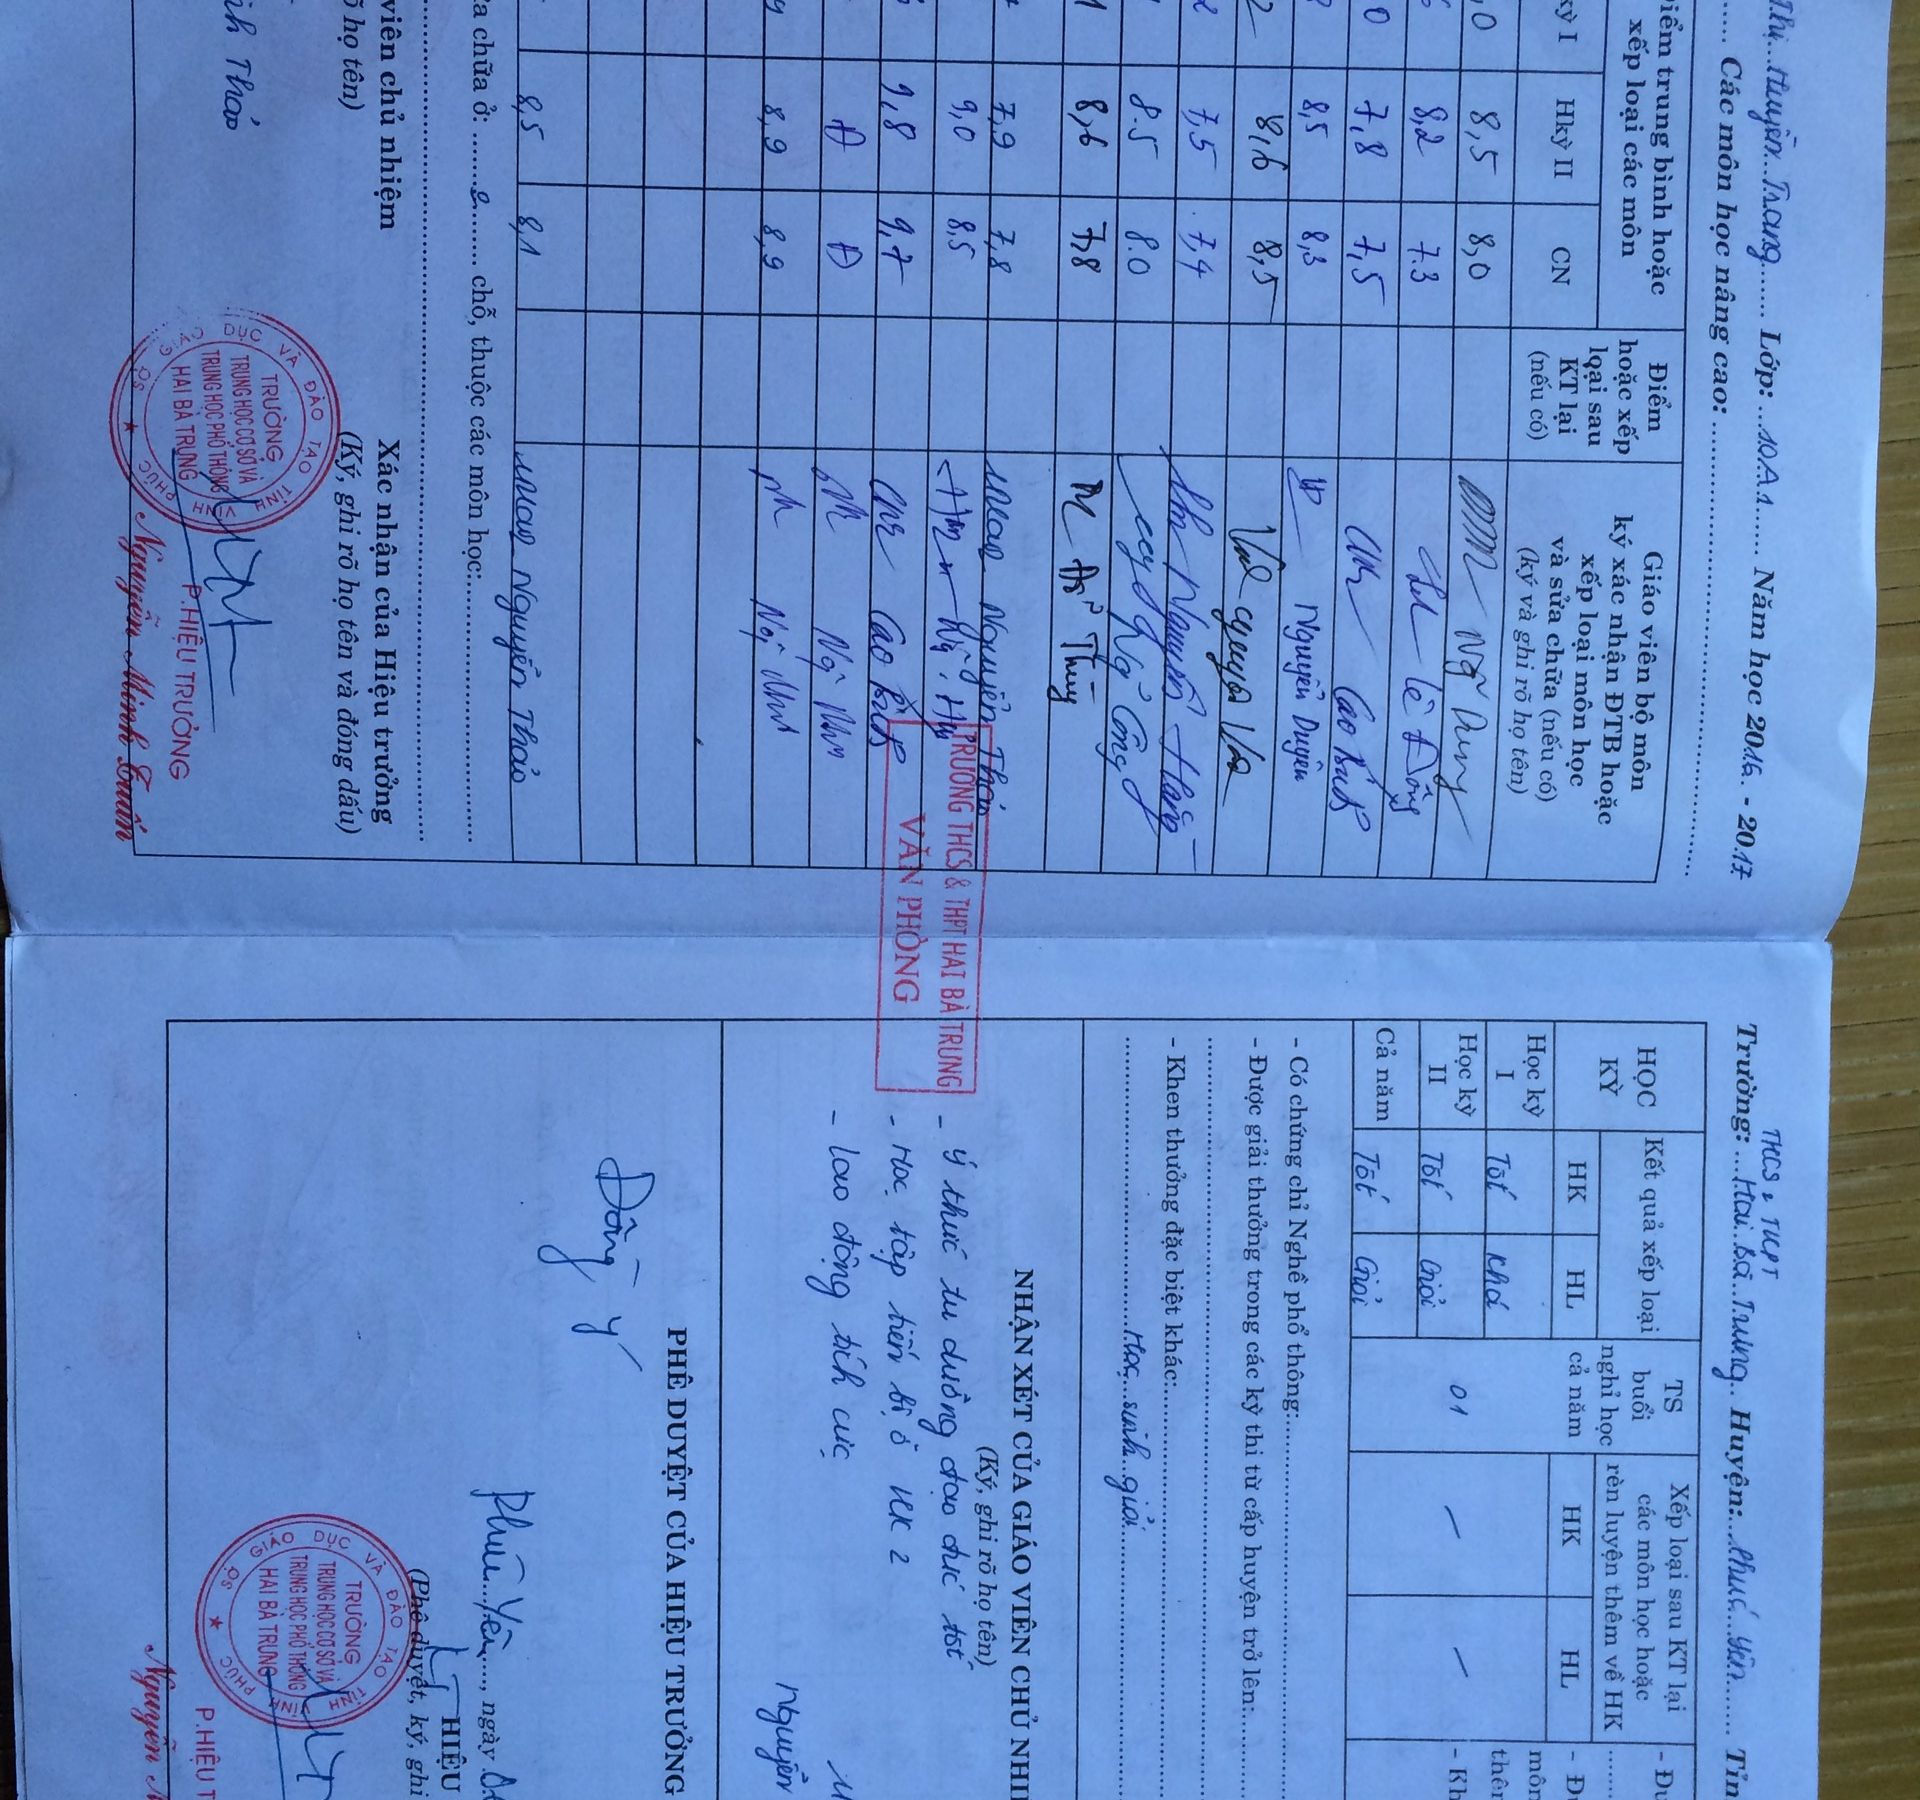 Thị Huyền Trang Lớp: 10A1 Năm học 2016 - 2017
Các môn học nâng cao:
Điểm trung bình hoặc
xếp loại các môn
Điểm
hoặc xếp
loại sau
KT lại
(nếu có)
Giáo viên bộ môn
ký xác nhận ĐTB hoặc
xếp loại môn học
và sửa chữa (nếu có)
(ký và ghi rõ họ tên)
kỳ I Hkỳ II CN
8,5 8,0
8,2 7.3 Lê Đông
7,8 7,5
8,5 8,3 Nguyễn Duyên
8,6 8,5
7,5 7,4 Nguyễn Hằng
8.5 8.0
8,6 7,8 Thùy
7,9 7,8 Nguyễn Thảo
9,0 8,5
9,8 9,7 Cao
Đ Đ
8,9 8,9
8,5 8,1 Nguyễn Thảo
a chữa ở: 2 chỗ, thuộc các môn học:
viên chủ nhiệm
õ họ tên)
Thảo
Xác nhận của Hiệu trưởng
(Ký, ghi rõ họ tên và đóng dấu)
SỞ GIÁO DỤC VÀ ĐÀO TẠO TỈNH VĨNH PHÚC
TRƯỜNG
TRUNG HỌC CƠ SỞ VÀ
TRUNG HỌC PHỔ THÔNG
HAI BÀ TRƯNG
P.HIỆU TRƯỞNG
Nguyễn Minh Tuấn
TRƯỜNG THCS & THPT HAI BÀ TRƯNG
VĂN PHÒNG
THCS & THPT
Trường: Hai Bà Trưng Huyện: Phúc Yên Tỉn
HỌC
KỲ
Kết quả xếp loại
TS
buổi
nghỉ học
cả năm
Xếp loại sau KT lại
các môn học hoặc
rèn luyện thêm về HK
HK HL HK HL
Học kỳ
I
Tốt Khá
Học kỳ
II
Tốt Giỏi 01 – –
Cả năm Tốt Giỏi
- Đu
- Đu
môn
thên
- Kh
- Có chứng chỉ Nghề phổ thông:
- Được giải thưởng trong các kỳ thi từ cấp huyện trở lên:
- Khen thưởng đặc biệt khác:
Học sinh giỏi
NHẬN XÉT CỦA GIÁO VIÊN CHỦ NHI
(Ký, ghi rõ họ tên)
- Ý thức tu dưỡng đạo đức tốt
- Học tập tiến bộ ở HK 2
- Lao động tích cực
Nguyễn
PHÊ DUYỆT CỦA HIỆU TRƯỞNG
Đồng ý
Phúc Yên, ngày
HIỆU
(Phê duyệt, ký, ghi
SỞ GIÁO DỤC VÀ ĐÀO TẠO TỈNH VĨNH PHÚC
TRƯỜNG
TRUNG HỌC CƠ SỞ VÀ
TRUNG HỌC PHỔ THÔNG
HAI BÀ TRƯNG
P.HIỆU T
Nguyễn